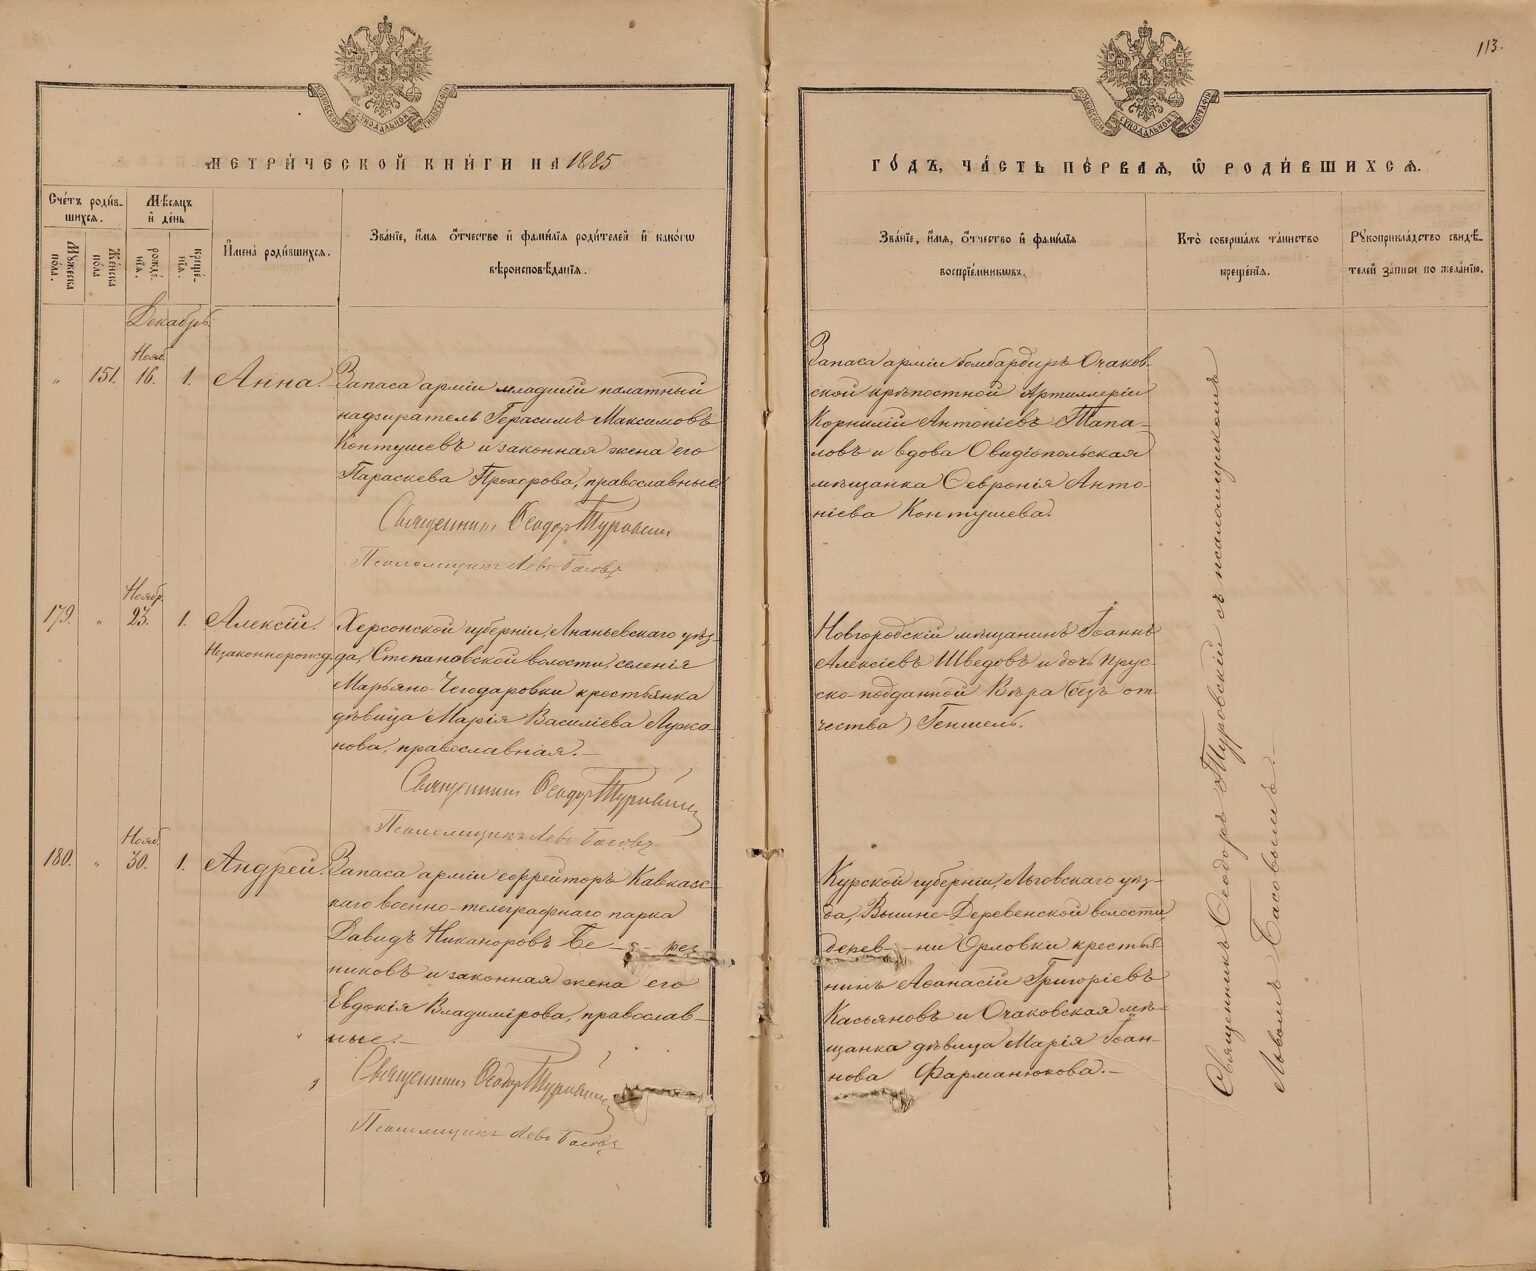 113.
МОСКОВСКОЙ СѴНОДАЛЬНОЙ ТИПОГРАФІИ
МОСКОВСКОЙ СѴНОДАЛЬНОЙ ТИПОГРАФІИ
МЕТРИ́ЧЕСКОЙ КНИ́ГИ НА 1885
ГО́ДЪ, ЧА́СТЬ ПЕ́РВАѦ, Ѡ РОДИ́ВШИХСѦ.
Сче́тъ роди́в-
шихсѧ.
Мѣ́сѧцъ
и҆ де́нь
Мꙋ́жеска
по́ла.
Же́нска
по́ла
рожде́-
нїѧ.
креще́-
нїѧ.
И҆мена̀ роди́вшихсѧ.
Зва́нїе, и҆́мѧ ѻ҆́тчество и҆ фами́лїѧ роди́телей и҆ како́гѡ
вѣроисповѣ́данїѧ.
Зва́нїе, и҆́мѧ, ѻ҆́тчество и҆ фами́лїѧ
воспрїе́мникѡвъ.
Кто̀ соверша́лъ та́инство
креще́нїѧ.
Рꙋкоприкла́дство свидѣ́-
телей за́писи по жела́нїю.
Декабрь.
Нояб.
" 151. 16. 1. Анна.
Запаса арміи младшій палатный
надзиратель Герасимъ Максимовъ
Контушевъ и законная жена его
Параскева Прохорова, православные.
Священникъ Ѳеодоръ Туровскій
Псаломщикъ Левъ Басовъ
Запаса арміи бомбардиръ Очаков-
ской крѣпостной Артиллеріи
Корнилій Антоніевъ Тапа-
ловъ и вдова Овидіопольская
мѣщанка Ѳевронія Анто-
ніева Контушева.
Ноябр.
179. " 23. 1. Алексій.
Незаконнорожд.
Херсонской губерніи, Ананьевскаго уѣз-
да, Степановской волости, селенія
Марьяно-Чегодаровки крестьянка
дѣвица Марія Василіева Лужа-
нова, православная.—
Священникъ Ѳеодоръ Туровскій
Псаломщикъ Левъ Басовъ
Новгородскій мѣщанинъ Іоаннъ
Алексіевъ Шведовъ и дочь Прус-
ско-подданной Вѣра (безъ от-
чества) Геншель.
Нояб.
180. " 30. 1. Андрей.
Запаса арміи ефрейторъ Кавказс-
каго военно-телеграфнаго парка
Давидъ Никаноровъ Бе- - рез
никовъ и законная жена его
Евдокія Владимірова, православ-
ные.—
Священникъ Ѳеодоръ Туровскій
Псаломщикъ Левъ Басовъ
Курской губерніи, Льговскаго уѣз-
да, Вышне-Деревенской волости
дерев- -ни Орловки крестья-
нинъ Аѳанасій Григоріевъ
Касьяновъ и Очаковская мѣ-
щанка дѣвица Марія Іоан-
нова Фарманюкова.—
Священникъ Ѳеодоръ Туровскій съ псаломщикомъ
Львомъ Басовымъ.